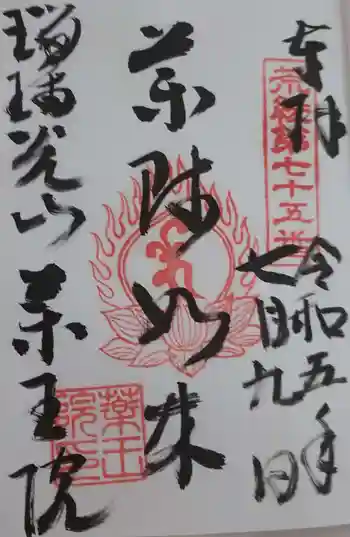 奉拝
七十五番
令和五年
七月九日
薬師如来
瑠璃光山 薬王院
薬王
院印